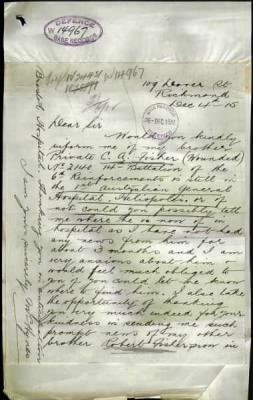 DEFENCE
W 14967
BASE RECORDS
W 14967
109 Dover St
Richmond
Dec 4th 15
Dear Sir
Would you kindly
inform me if my brother
Private C. A. Fisher (Wounded)
No 2140 14th Battalion of the
6th Reinforcements is still in
the 1st Australian General
Hospital Heliopolis. or if
not could you possibly tell
me where he is now in
hospital as I have not had
any news from him for
about 3 months and I am
very anxious about him
would feel much obliged to
you if you could let me know
where to find him. I also take
the opportunity of thanking
you very much indeed for your
kindness in sending me such
prompt news of my other
brother Robert in
Hospital. Thanking you in anticipation
I am yours sincerely